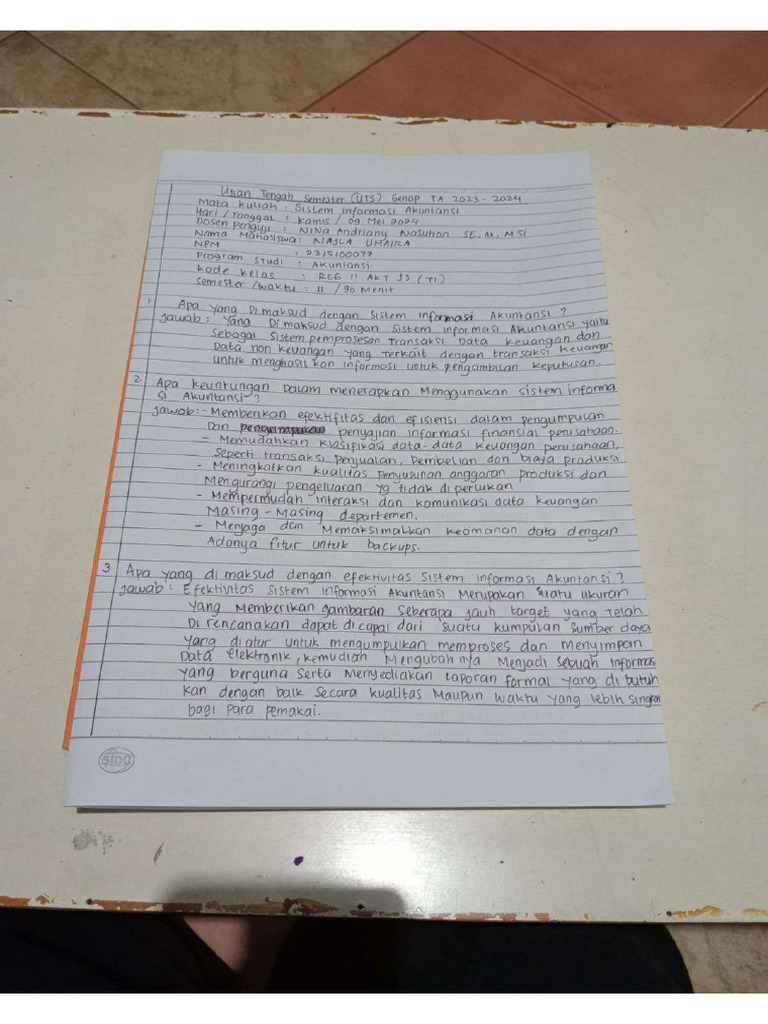 Ujian Tengah Semester (UTS) Genap TA 2023 - 2024
Mata kuliah : Sistem informasi Akuntansi
Hari / Tanggal : Kamis / 09 Mei 2024
Dosen Penguji : NINA Andriany Nasution SE. Ak, M.Si
Nama Mahasiswa : NAJLA UMAIRA
NPM : 2315100077
Program Studi : Akuntansi
Kode kelas : REG II AKT (TI)
Semester /waktu : II / 90 Menit
1. Apa yang Di maksud dengan Sistem informasi Akuntansi ?
Jawab : Yang Di maksud dengan Sistem informasi Akuntansi yaitu
Sebagai Sistem pemprosesan transaksi Data keuangan dan
Data non keuangan yang Terkait dengan transaksi keuangan
untuk menghasilkan informasi untuk pengambilan keputusan.
2. Apa keuntungan Dalam menerapkan Menggunakan sistem informa
si Akuntansi ?
Jawab : - Memberikan efektifitas dan efisiensi dalam pengumpulan
Dan penyajian informasi finansial perusahaan.
- Memudahkan klasifikasi data-data keuangan perusahaan,
Seperti transaksi penjualan, Pembelian dan biaya produksi
- Meningkatkan kualitas penyusunan anggaran produksi dan
Mengurangi pengeluaran yg tidak diperlukan
- Mempermudah interaksi dan komunikasi data keuangan
Masing - Masing departemen.
- Menjaga dan Memaksimalkan keamanan data dengan
Adanya fitur untuk backups.
3 Apa yang di maksud dengan efektivitas Sistem informasi Akuntansi ?
Jawab : Efektivitas Sistem informasi Akuntansi Merupakan Suatu ukuran
yang Memberikan gambaran Seberapa jauh target yang Telah
Di rencanakan dapat di capai dari Suatu kumpulan Sumber daya
yang diatur untuk mengumpulkan memproses dan menyimpan
Data elektronik, kemudian Mengubah nya Menjadi Sebuah informas
yang berguna Serta Menyediakan laporan formal yang di butuh
kan dengan baik Secara kualitas Maupun waktu yang lebih Singkat
bagi Para Pemakai.
SIDU